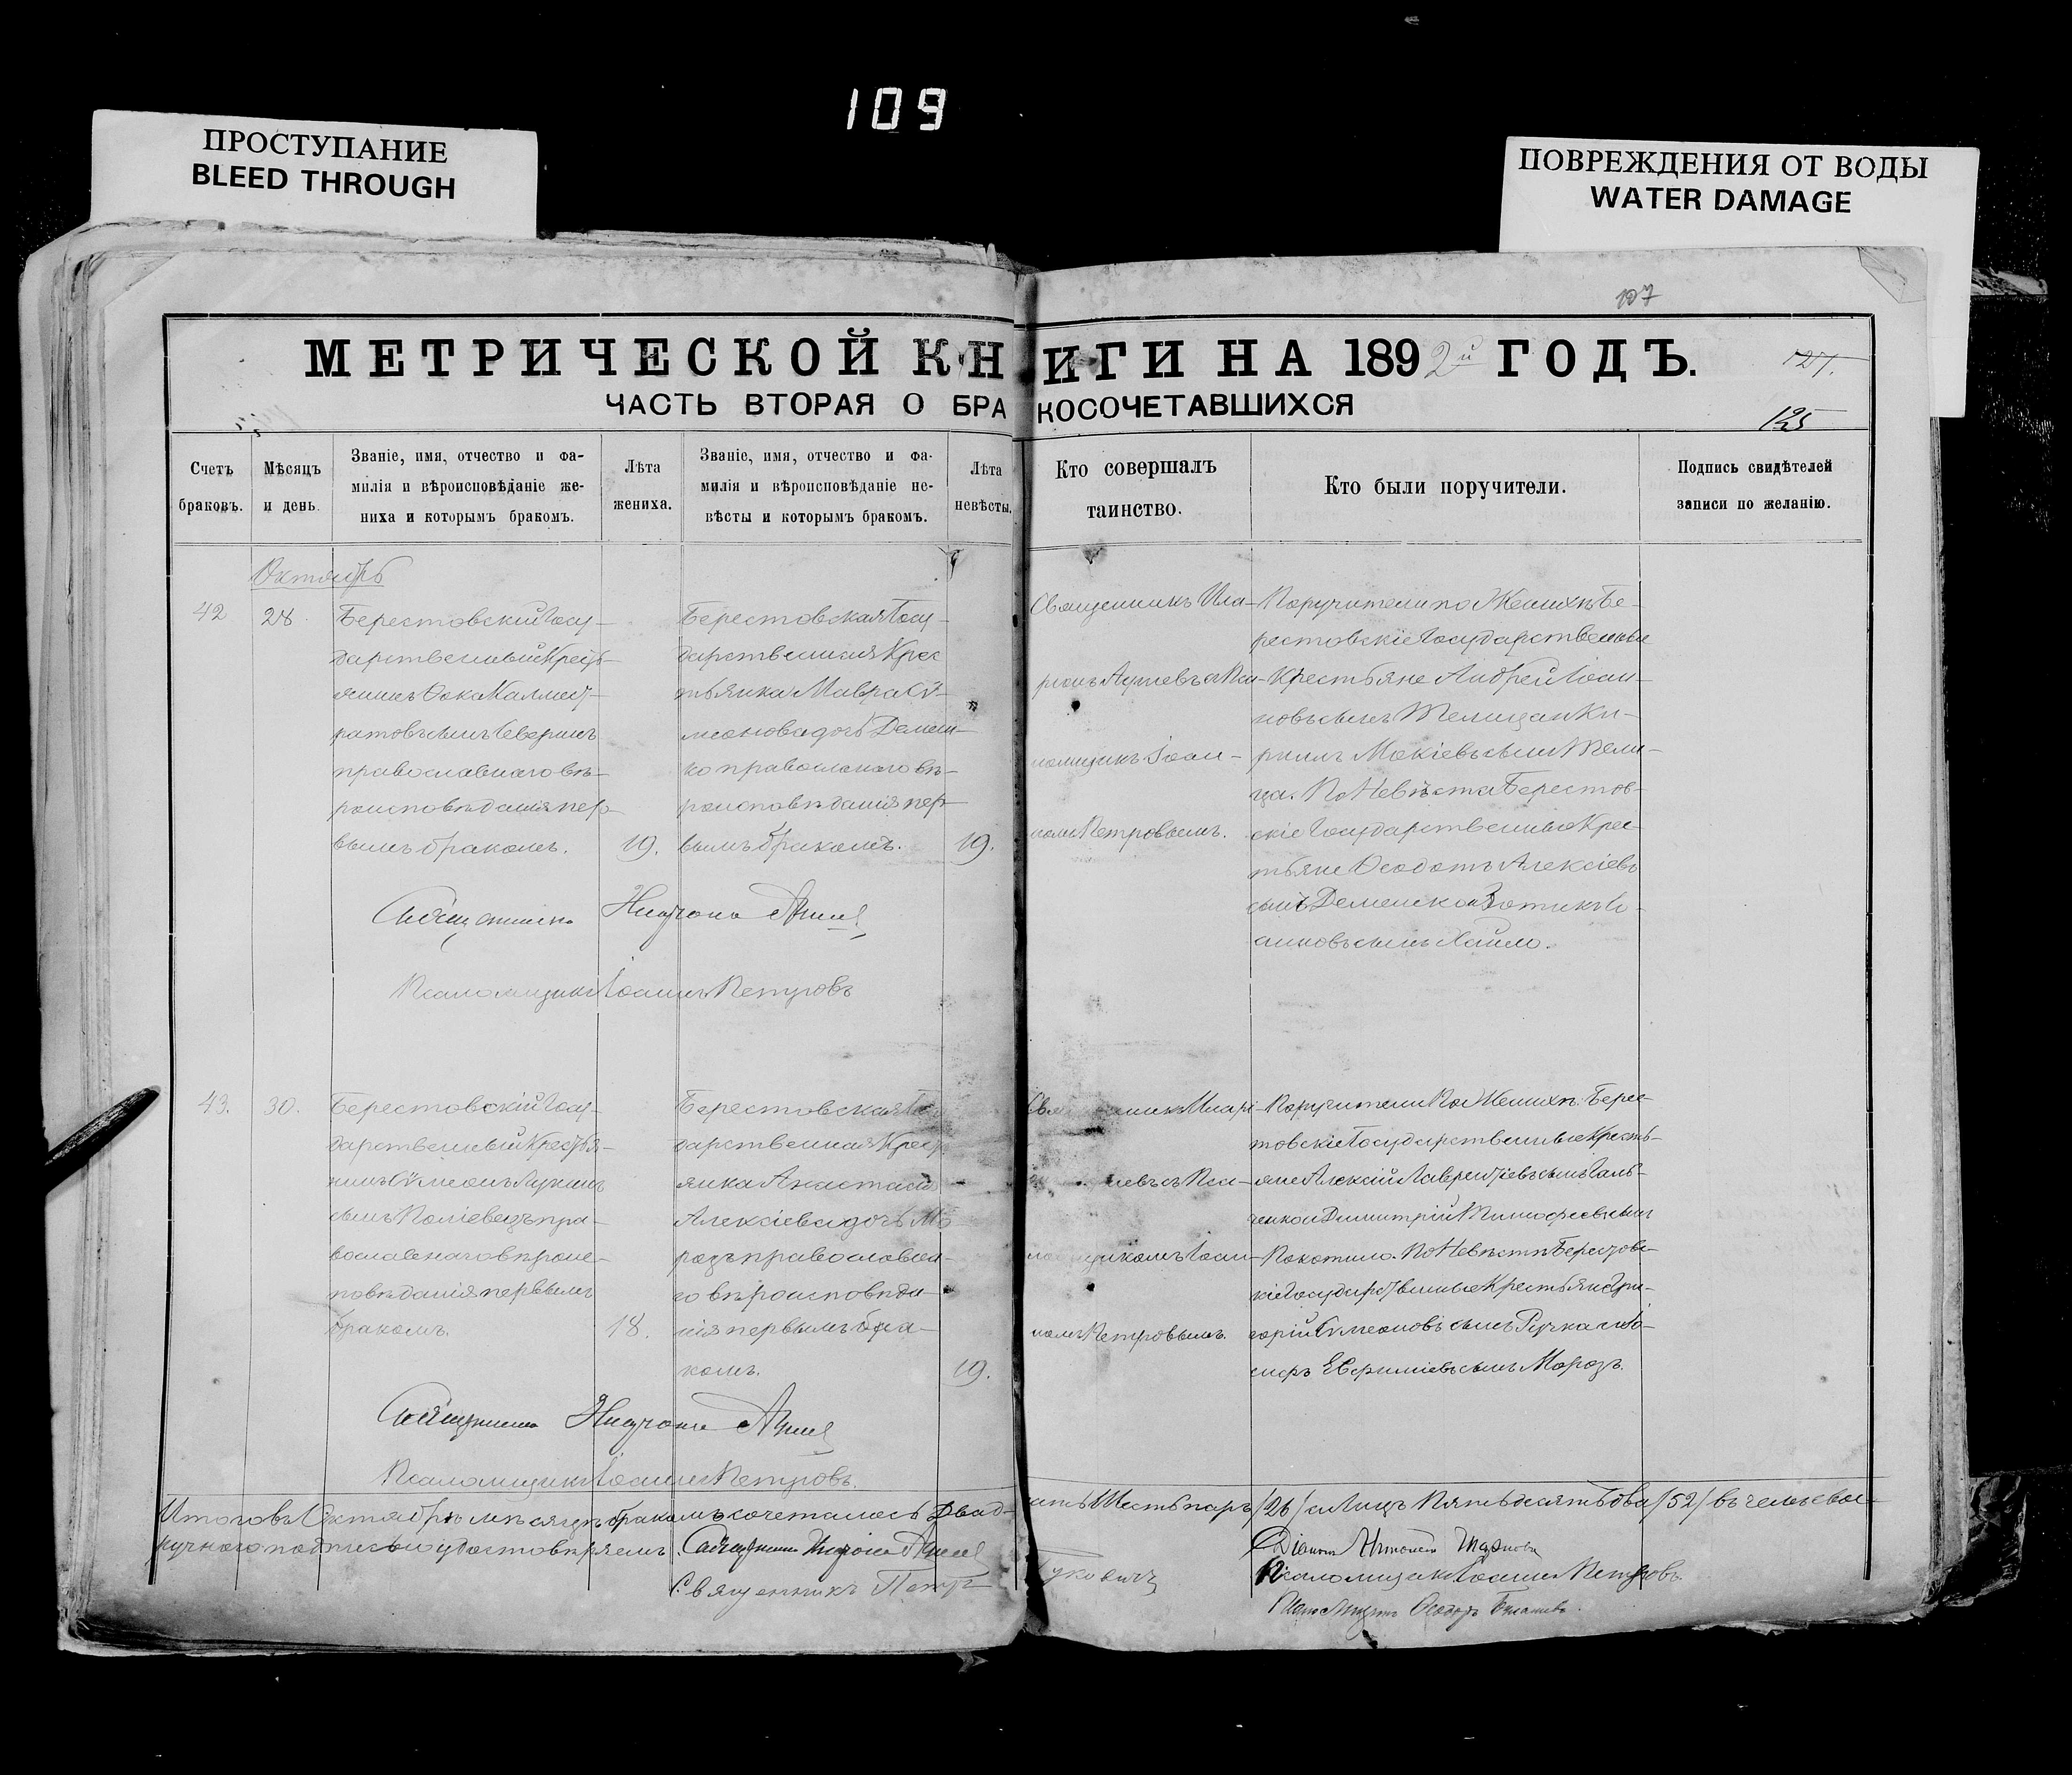 109
ПРОСТУПАНИЕ
BLEED THROUGH
ПОВРЕЖДЕНИЯ ОТ ВОДЫ
WATER DAMAGE
107
МЕТРИЧЕСКОЙ КНИГИ НА 1892й ГОДЪ.
127.
ЧАСТЬ ВТОРАЯ О БРАКОСОЧЕТАВШИХСЯ
125
Счетъ
браковъ.
Мѣсяцъ
и день.
Званіе, имя, отчество и фа-
милія и вѣроисповѣданіе же-
ниха и которымъ бракомъ.
Лѣта
жениха.
Званіе, имя, отчество и фа-
милія и вѣроисповѣданіе не-
вѣсты и которымъ бракомъ.
Лѣта
невѣсты.
Кто совершалъ
таинство.
Кто были поручители.
Подпись свидѣтелей
записи по желанію.
Октябрь
42
28.
Берестовскій Госу-
дарственный Кресть-
янинъ Ѳока Каллист-
ратовъ сынъ
православнаго вѣ-
роисповѣданія пер-
вымъ бракомъ.
19.
Берестовская Госу-
дарственная Крес
тьянка Мавра Сѵ-
меонова дочь Демен-
ко православнаго вѣ-
роисповѣданія пер-
вымъ бракомъ.
19.
Священникъ Ила-
ріонъ съ Пса-
ломщикъ Іоан-
номъ Петровымъ.
Поручители по Женихѣ Бе-
рестовскіе Государственные
Крестьяне Андрей Іоан-
новъ сынъ и Ки-
риллъ Мокіевъ сынъ
По Невѣстѣ Берестов-
скіе Государственные Крес-
тьяне Ѳеодотъ Алексіевъ
сынъ Деменко и Зотикъ Іо-
анновъ сынъ
Священникъ
Псаломщикъ Іоаннъ Петровъ
43.
30.
Берестовскій Госу-
дарственный Крестья-
нинъ Сѵмеонъ Лукинъ
сынъ Поліевецъ пра-
вославнаго вѣроис-
повѣданія первымъ
бракомъ.
18.
Берестовская Го
дарственная Крест
янка Анастасія
Алексіева дочь Мо
розъ православна-
го вѣроисповѣда-
нія первымъ бра-
комъ.
19.
Иларі-
съ Пса-
Іоан-
номъ Петровымъ.
Поручители По Женихѣ: Берес-
товскіе Государственные Кресть-
яне Алексій Лаврентіевъ сынъ Галь-
ченко и Димитрій Тимофеевъ сынъ
Покотило. По Невѣстѣ Берестовс-
кіе Государственные Крестьяне Гри-
горій Сѵмеоновъ сынъ Ручка и Іо-
сифъ Евфиміевъ сынъ Морозъ.
Священникъ
Псаломщикъ Іоаннъ Петровъ.
Итого въ Октябрѣ мѣсяцѣ бракомъ сочеталось Двад-
цать Шесть паръ /26/ а Лицъ Пятьдесятъ два /52/ въ чемъ свое-
ручною подписью удостовѣряемъ. Священникъ
Діаконъ
Священникъ Петръ
Псаломщикъ Іоаннъ Петровъ.
Псаломщикъ Ѳеодоръ